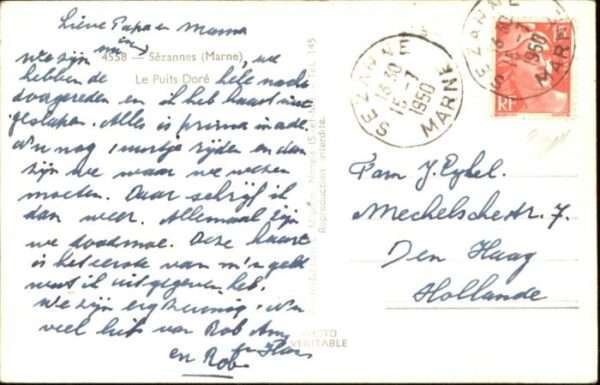 Lieve Papa en Mama
We zijn nu in
4558 – Sézannes (Marne)
we
hebben de
Le Puits Doré
hele nacht
doorgereden en ik heb haast niet
geslapen. Alles is prima in orde.
N'u nog 1 uurtje rijden en dan
zijn we waar we wezen
moeten. Daar schrijf ik
dan weer. Allemaal zijn
we doodmoe. Deze kaart
is het eerste van m'n geld
wat ik uitgegeven heb.
We zijn erg
veel liefs van Rob
en Rob
Reproduction interdite.
PHOTO
VERITABLE
SEZANNE
16 30
15 -7
1950
MARNE
SEZANNE
16 30
15 -7
1950
MARNE
RF
Fam J. Eykel.
Mechelschestr. 7.
Den Haag
Hollande